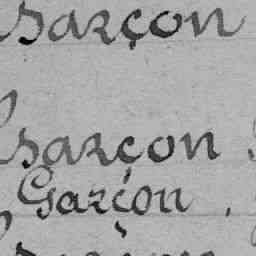 Garçon
Garçon
Garçon.